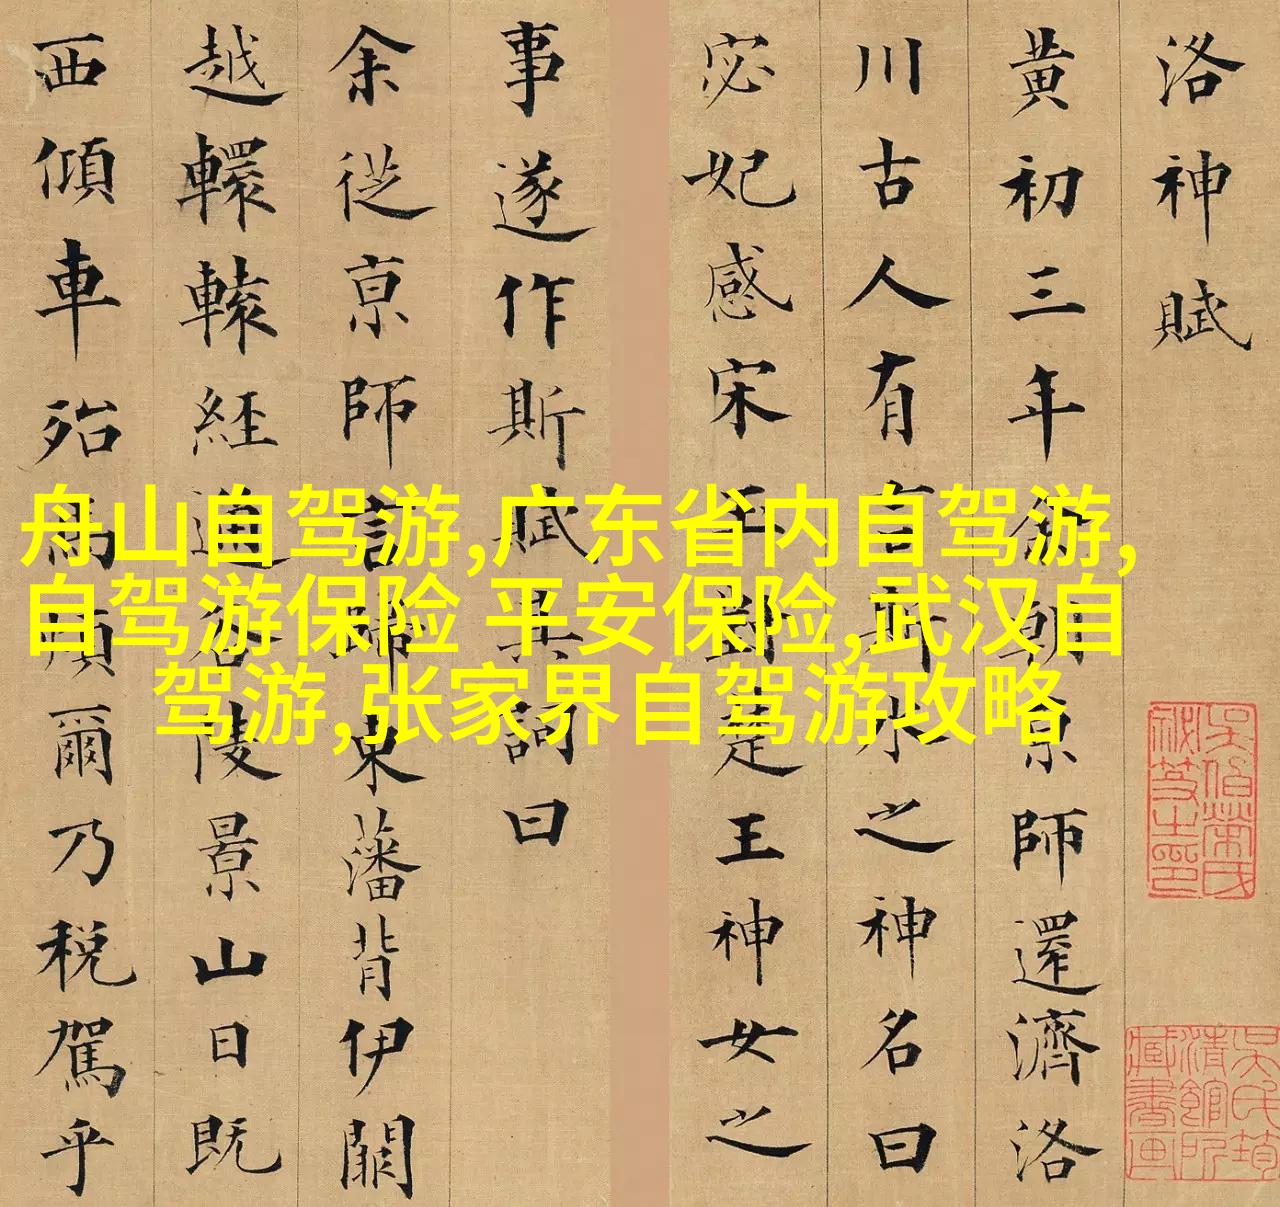 洛神賦
黃初三年余朝京師還濟洛
川古人有言斯水之神名曰
宓妃感宋玉對楚王神女之
事遂作斯賦其詞曰
余從京師言歸東藩背伊闕
越轘轅經通谷陵景山日既
西傾車殆馬煩爾乃稅駕乎
舟山自驾游,广东省内自驾游,
自驾游保险 平安保险,武汉自
驾游,张家界自驾游攻略